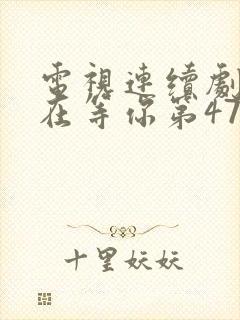 電視連續劇
在等你第47
十里妖妖